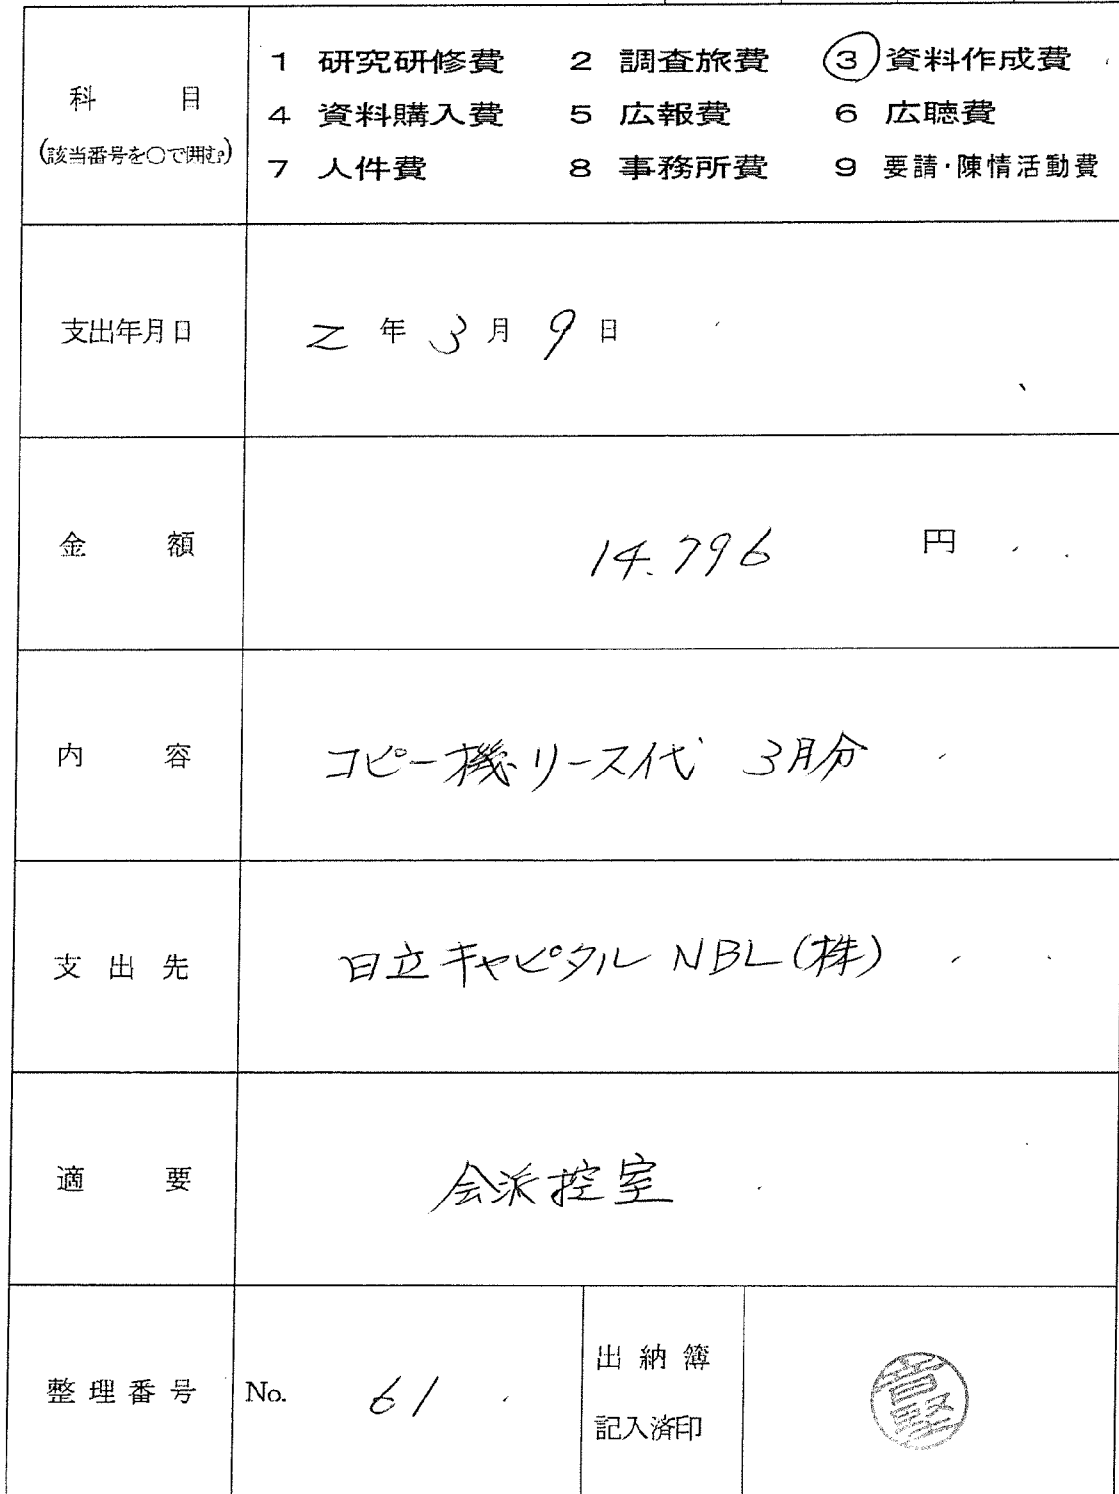 科目
(該当番号を〇で囲む。)
1 研究研修費 2 調査旅費 3 資料作成費
4 資料購入費 5 広報費 6 広聴費
7 人件費 8 事務所費 9 要請・陳情活動費
支出年月日 2年3月9日
金額 14.796 円
内容 コピー機リース代 3月分
支出先 日立キャピタルNBL(株)
適要 会派控室
整理番号 No. 61
出納簿
記入済印